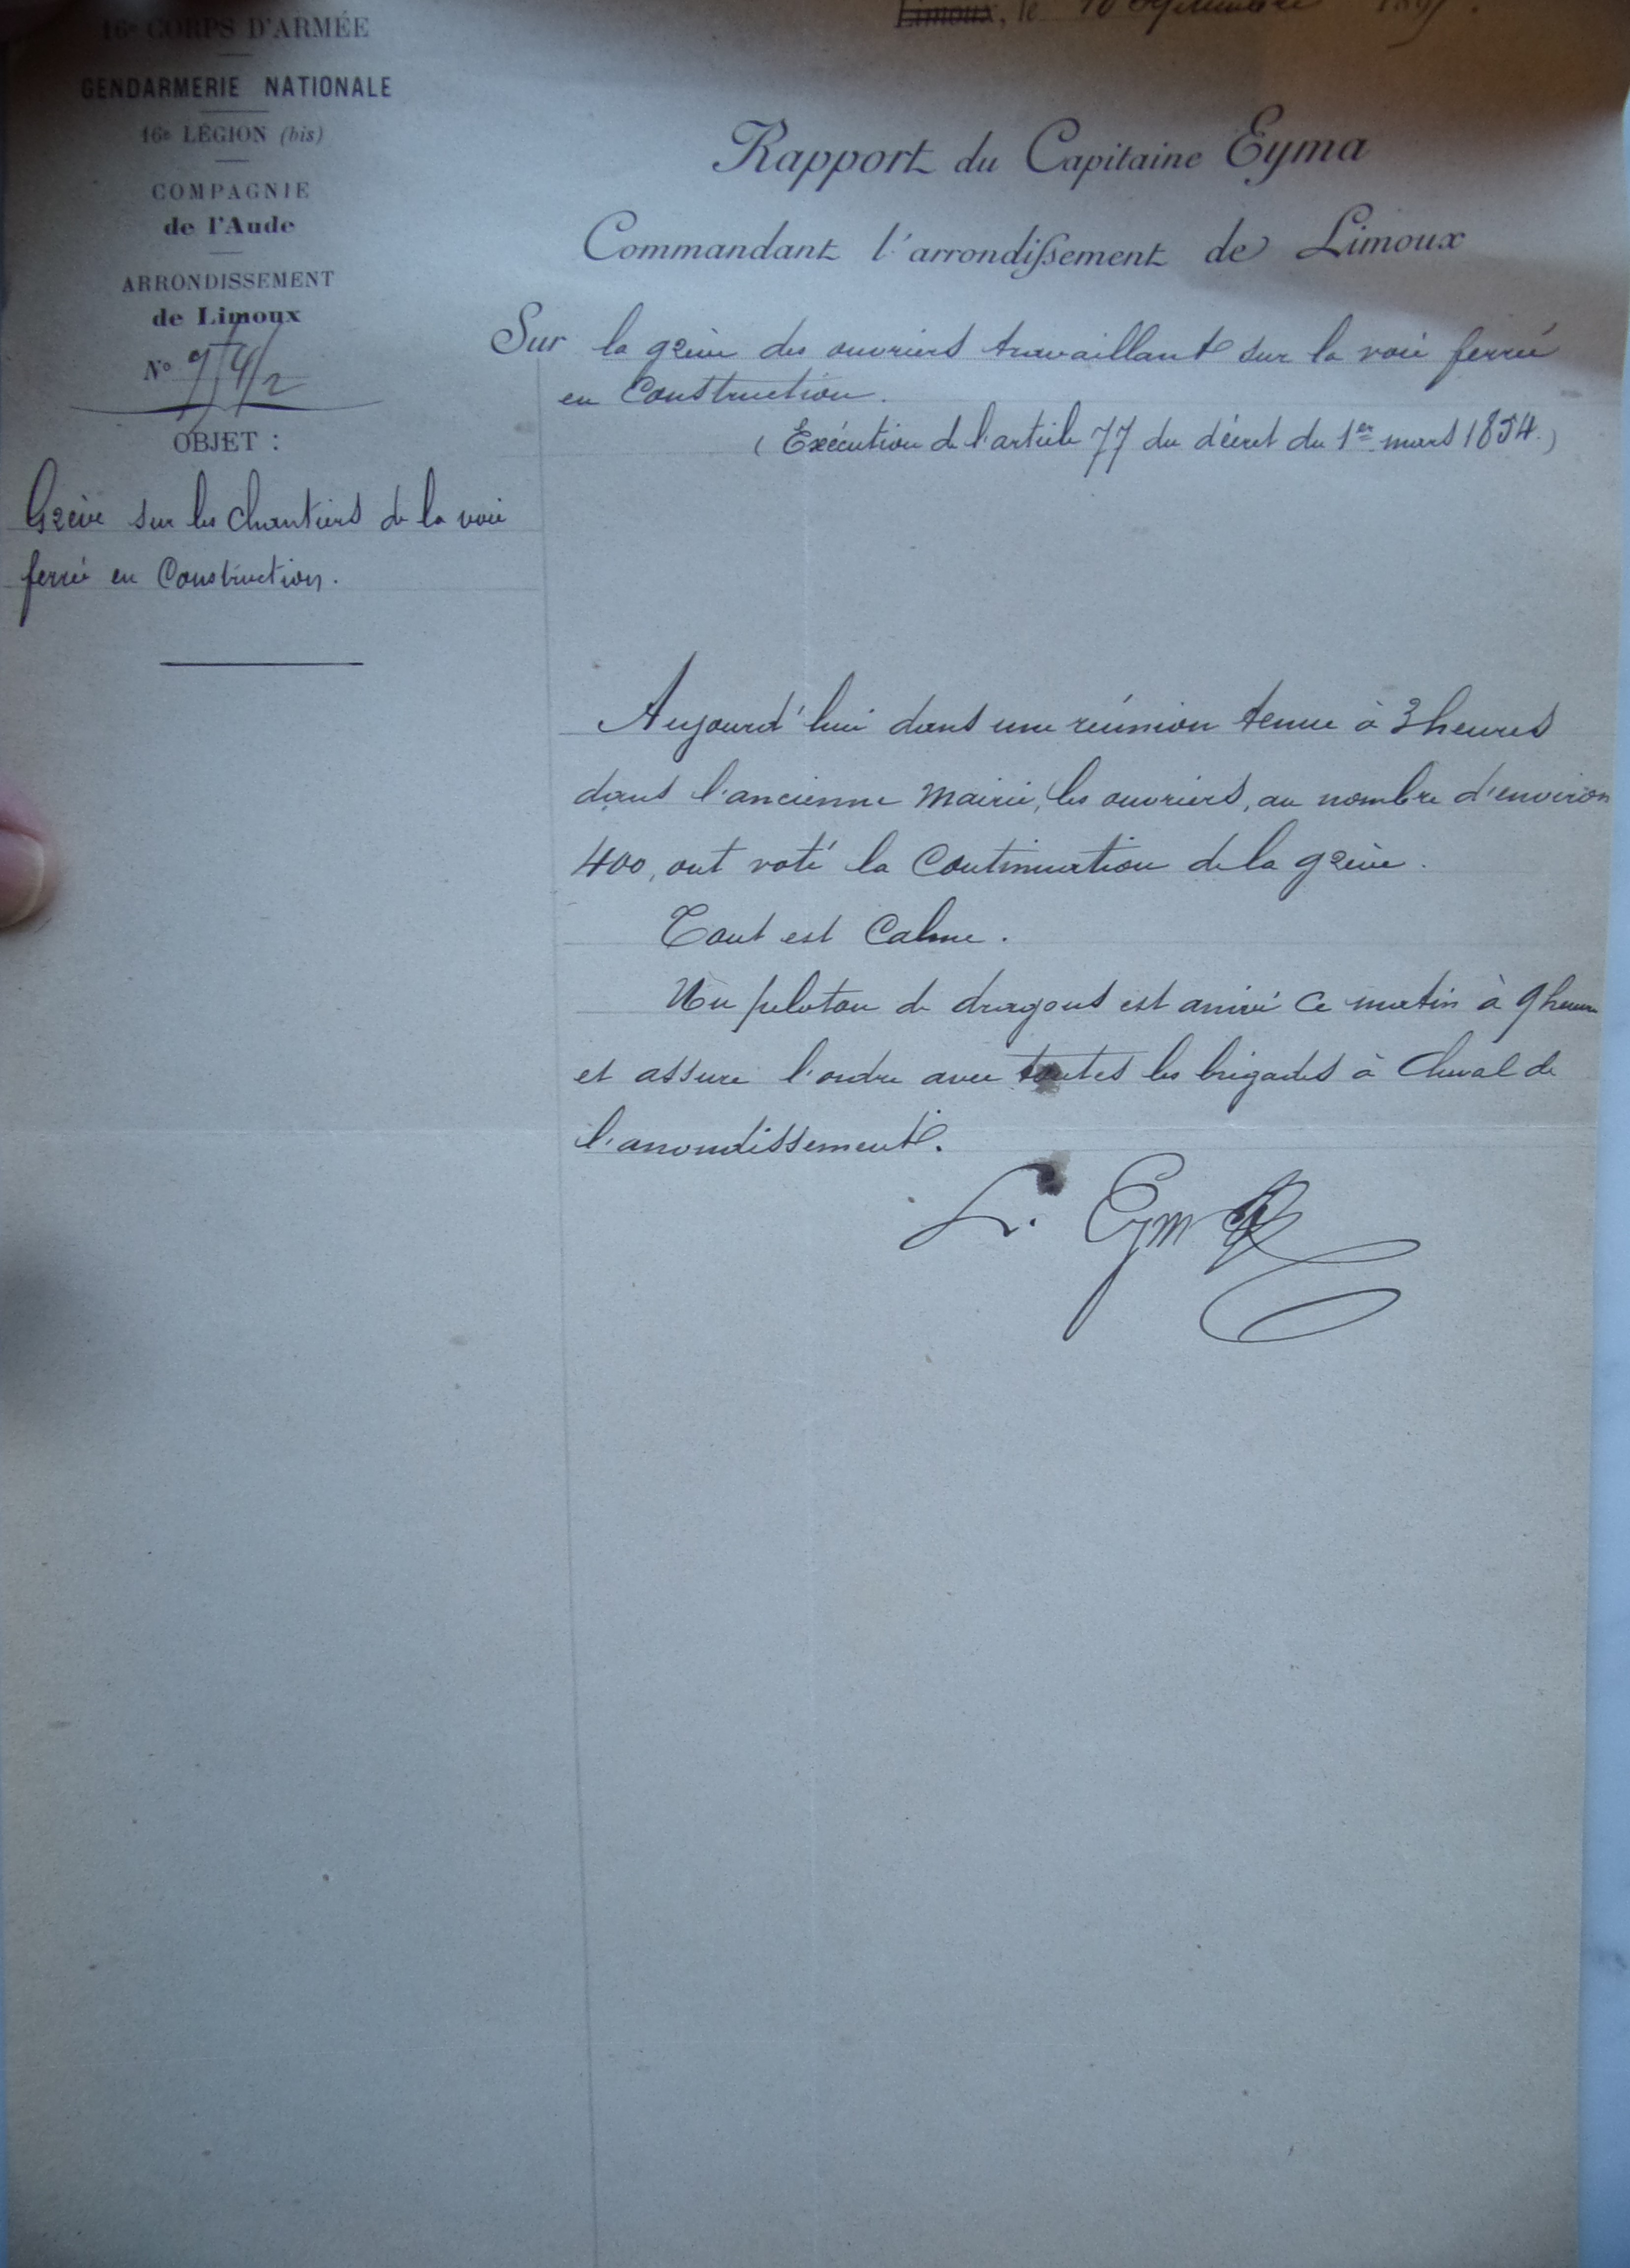 16e CORPS D'ARMÉE
GENDARMERIE NATIONALE
16e LÉGION (bis)
COMPAGNIE
de l'Aude
ARRONDISSEMENT
de Limoux
No
OBJET :
Grève sur les chantiers de la voie
ferrée en Construction.
Limoux, le 10 Septembre
Rapport du Capitaine Eyma
Commandant l'arrondissement de Limoux
Sur la grève des ouvriers travaillant sur la voie ferrée
en Construction.
(Exécution de l'article 77 du décret du 1er mars 1854.)
Aujourd'hui dans une réunion tenue à 3 heures
dans l'ancienne Mairie, les ouvriers, au nombre d'environ
400, ont voté la Continuation de la grève.
Tout est Calme.
Un peloton de dragons est arrivé ce matin à 9 heures
et assure l'ordre avec toutes les brigades à Cheval de
l'arrondissement.
L. Eyma